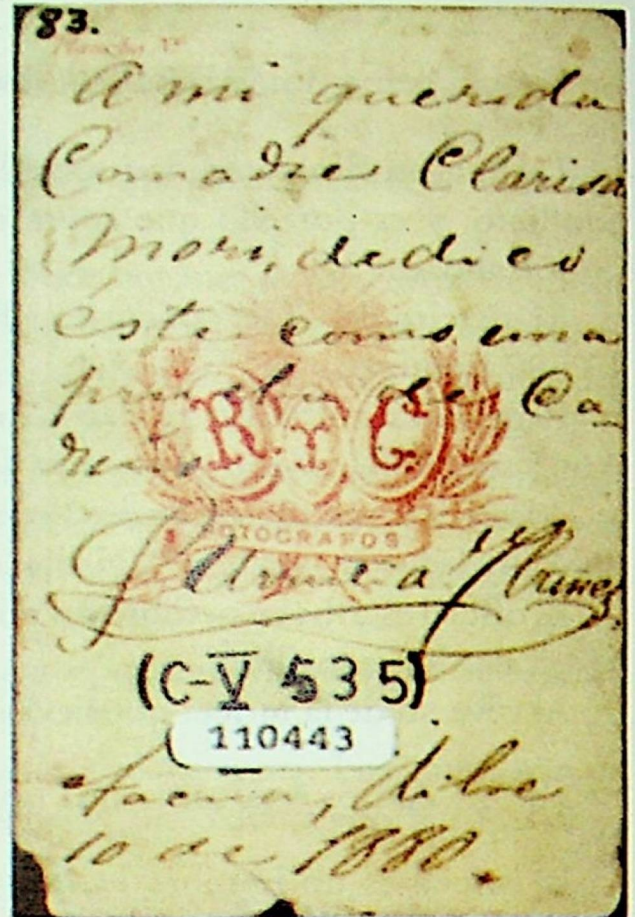 83.
Plancha Nº
A mi querida
Comadre Clarisa
Mori, dedico
éste como una
prueba de Ca-
riño
R Y C.
FOTOGRAFOS
Ibañez
(C-V 535)
110443
Tacna, dibre
10 de 1880.